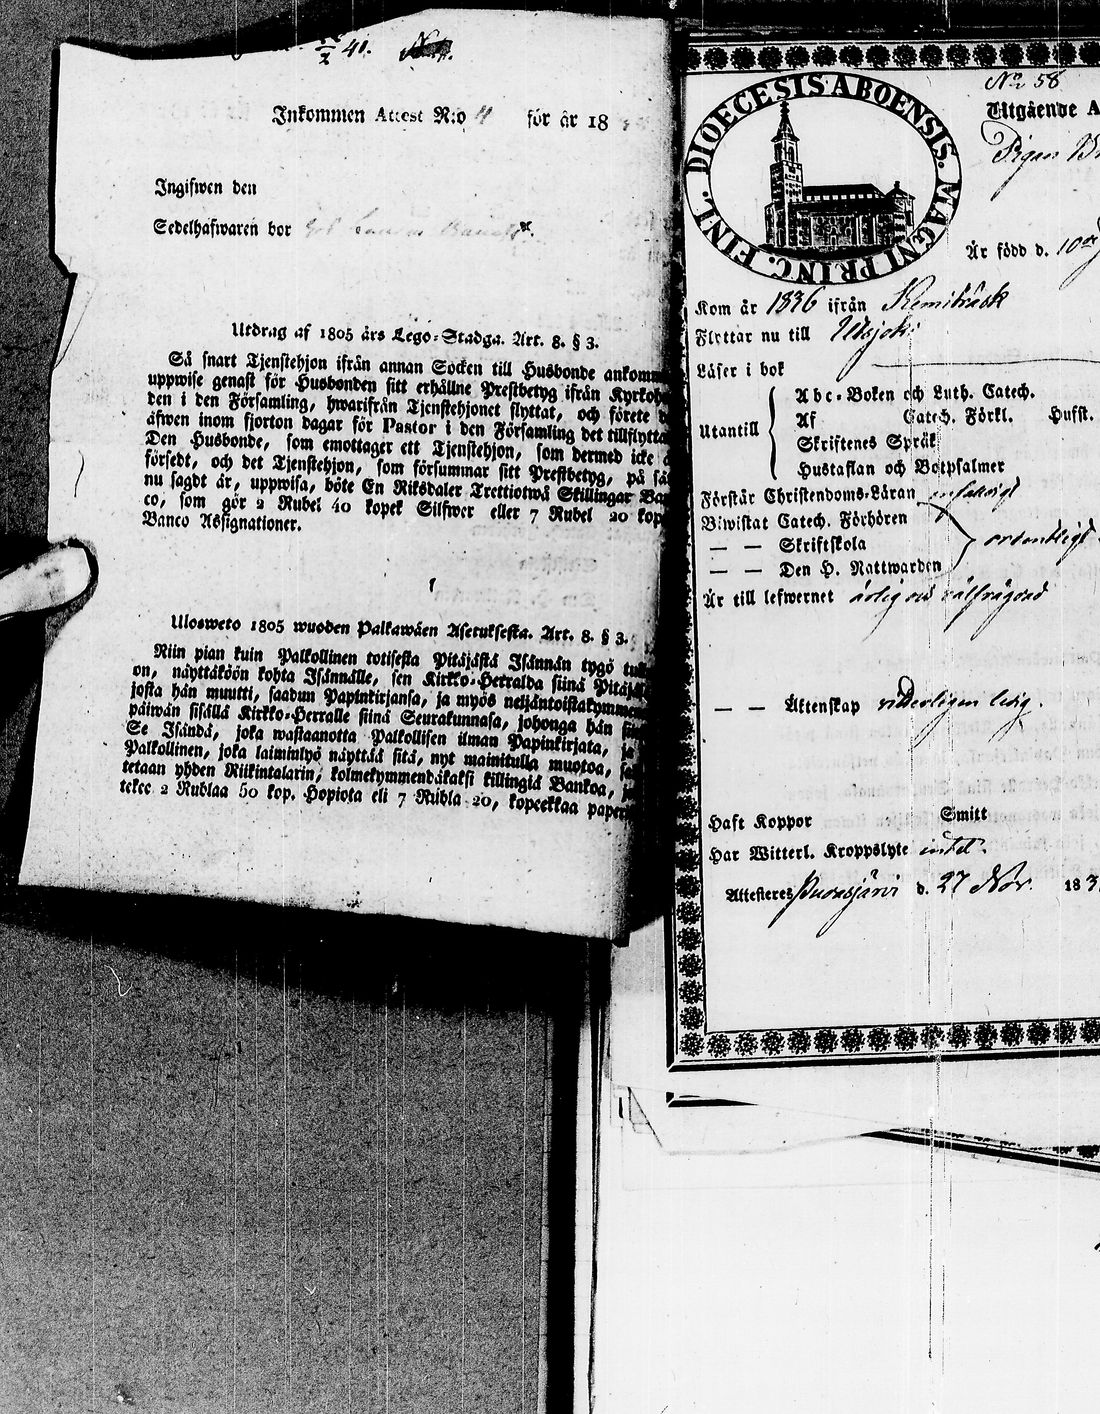 41.
Inkommen Attest N:o 4 för år 18
Ingifwen den
Sedelhafwaren bor
Utdrag af 1805 års Lego-Stadga. Art. 8. § 3.
Så snart Tjenstehjon ifrån annan Socken till Husbonde ankomm
uppwise genast för Husbonden sitt erhållne Prestbetyg ifrån Kyrkoh
den i den Församling, hwarifrån Tjenstehjonet flyttat, och förete
äfwen inom fjorton dagar för Pastor i den Församling det tillflytta
Den Husbonde, som emottager ett Tjenstehjon, som dermed icke
försedt, och det Tjenstehjon, som försummar sitt Prestbetyg, på så
nu sagdt är, uppwisa, böte En Riksdaler Trettiotwå Skillingar Ban
co, som gör 2 Rubel 40 kopek Silfwer eller 7 Rubel 20 kop
Banco Assignationer.
Ulosweto 1805 wuoden Palkawäen Asetuksesta. Art. 8. § 3.
Niin pian kuin Palkollinen toisesta Pitäjästä Isännän tygö tul
on, näyttäköön kohta Isännälle, sen Kirkko-Herralda siinä Pitäjä
josta hän muutti, saadun Papinkirjansa, ja myös neljäntoistakymmen
päiwän sisällä Kirkko-Herralle siinä Seurakunnasa, johonga hän
Se Isändä, joka wastaanotta Palkollisen ilman Papinkirjata, ja
Palkollinen, joka laiminlyö näyttää sitä, nyt mainitulla muotoa,
tetaan yhden Riikintalarin, kolmekymmendäkaksi killingiä Bankoa,
tekee 2 Rublaa 50 kop. Hopiota eli 7 Rubla 20, kopeekkaa paper
DIOECESIS ABOENSIS. MAGNI PRINC. FINL.
No 58
Utgående A
Pigan
Är född d. 10de
Kom år 1836 ifrån Kemiträsk
Flyttar nu till Utsjoki
Läser i bok
Utantill
Abc-Boken och Luth. Catech.
Af Catech. Förkl. Hufst.
Skriftenes Språk
Hustaflan och Botpsalmer
Förstår Christendoms-Läran enfaldigt
Biwistat Catech. Förhören
— — Skriftskola ordentligt
— — Den H. Nattwarden
Är till lefwernet ärlig och välfrägdad
— — Äktenskap vederligen ledig.
Haft Koppor Smitt
Har Witterl. Kroppslyte intet.
Attesteres Pudasjärvi d. 27 Nov. 183